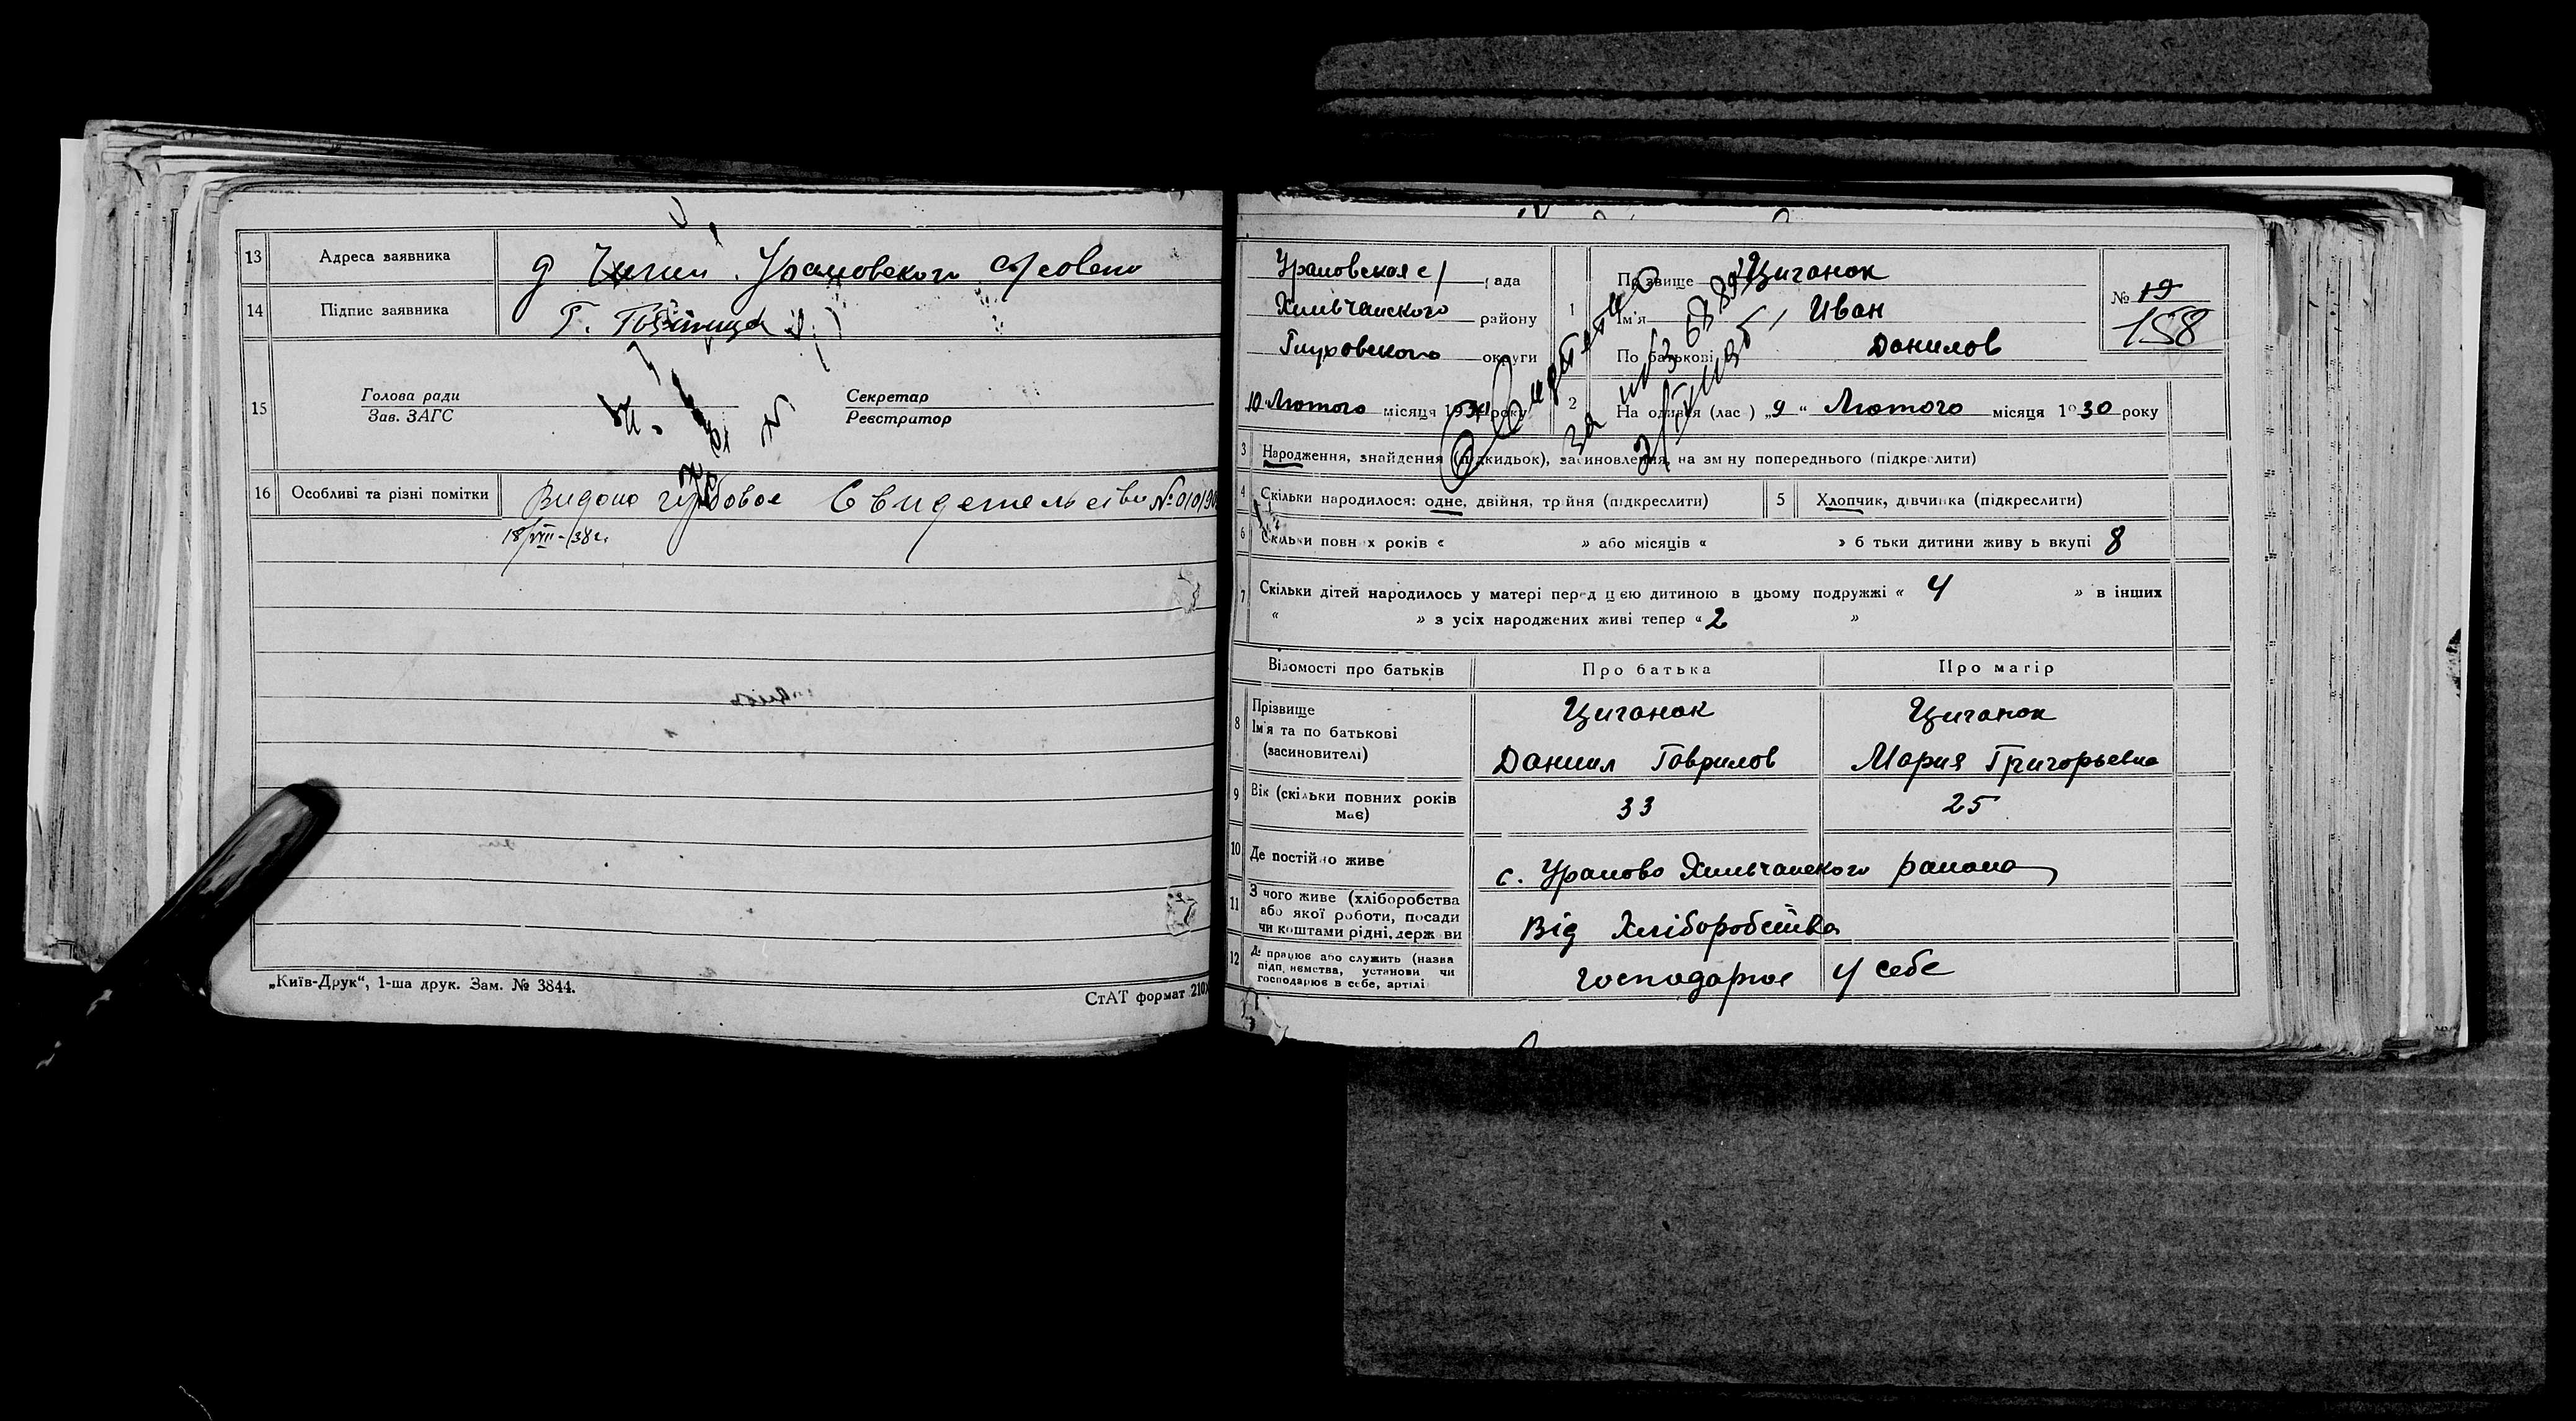 13 Адреса заявника д Ураловского с/совета
14 Підпис заявника Г.
15 Голова ради
Зав. ЗАГС
Секретар
Реєстратор
16 Особливі та різні помітки Видано гербовое Свидетельство №
18/VIII-38 г.
„Київ-Друк“, 1-ша друк. Зам. № 3844.
СтАТ формат 210
Ураловская с/ рада
Хильчанского району
Глуховского округи
10 Лютого місяця 1930 року
1 Прізвище Циганок
Ім'я Иван
По батькові Данилов
№ 19
158
2 На одився (лас ) „9“ Лютого місяця 1930 року
3 Народження, знайдення (підкидьок), засиновлення, на зміну попереднього (підкреслити)
4 Скільки народилося: одне, двійня, трійня (підкреслити)
5 Хлопчик, дівчинка (підкреслити)
6 Скільки повних років « » або місяців « » б тьки дитини живуть вкупі 8
7 Скільки дітей народилось у матері перед цією дитиною в цьому подружжі « 4 » в інших
« » з усіх народжених живі тепер « 2 »
Відомості про батьків Про батька Про матір
8 Прізвище Циганок Циганок
Ім'я та по батькові
(засиновителі) Даниил Гаврилов Мария Григорьевна
9 Вік (скільки повних років
має) 33 25
10 Де постійно живе с. Уралово Хильчанского района
11 З чого живе (хліборобства
або якої роботи, посади
чи коштами рідні, держ ви Від Хліборобства
12 Де працює або служить (назва
підприємства, установи чи
господарює в себе, артілі господарює у себе